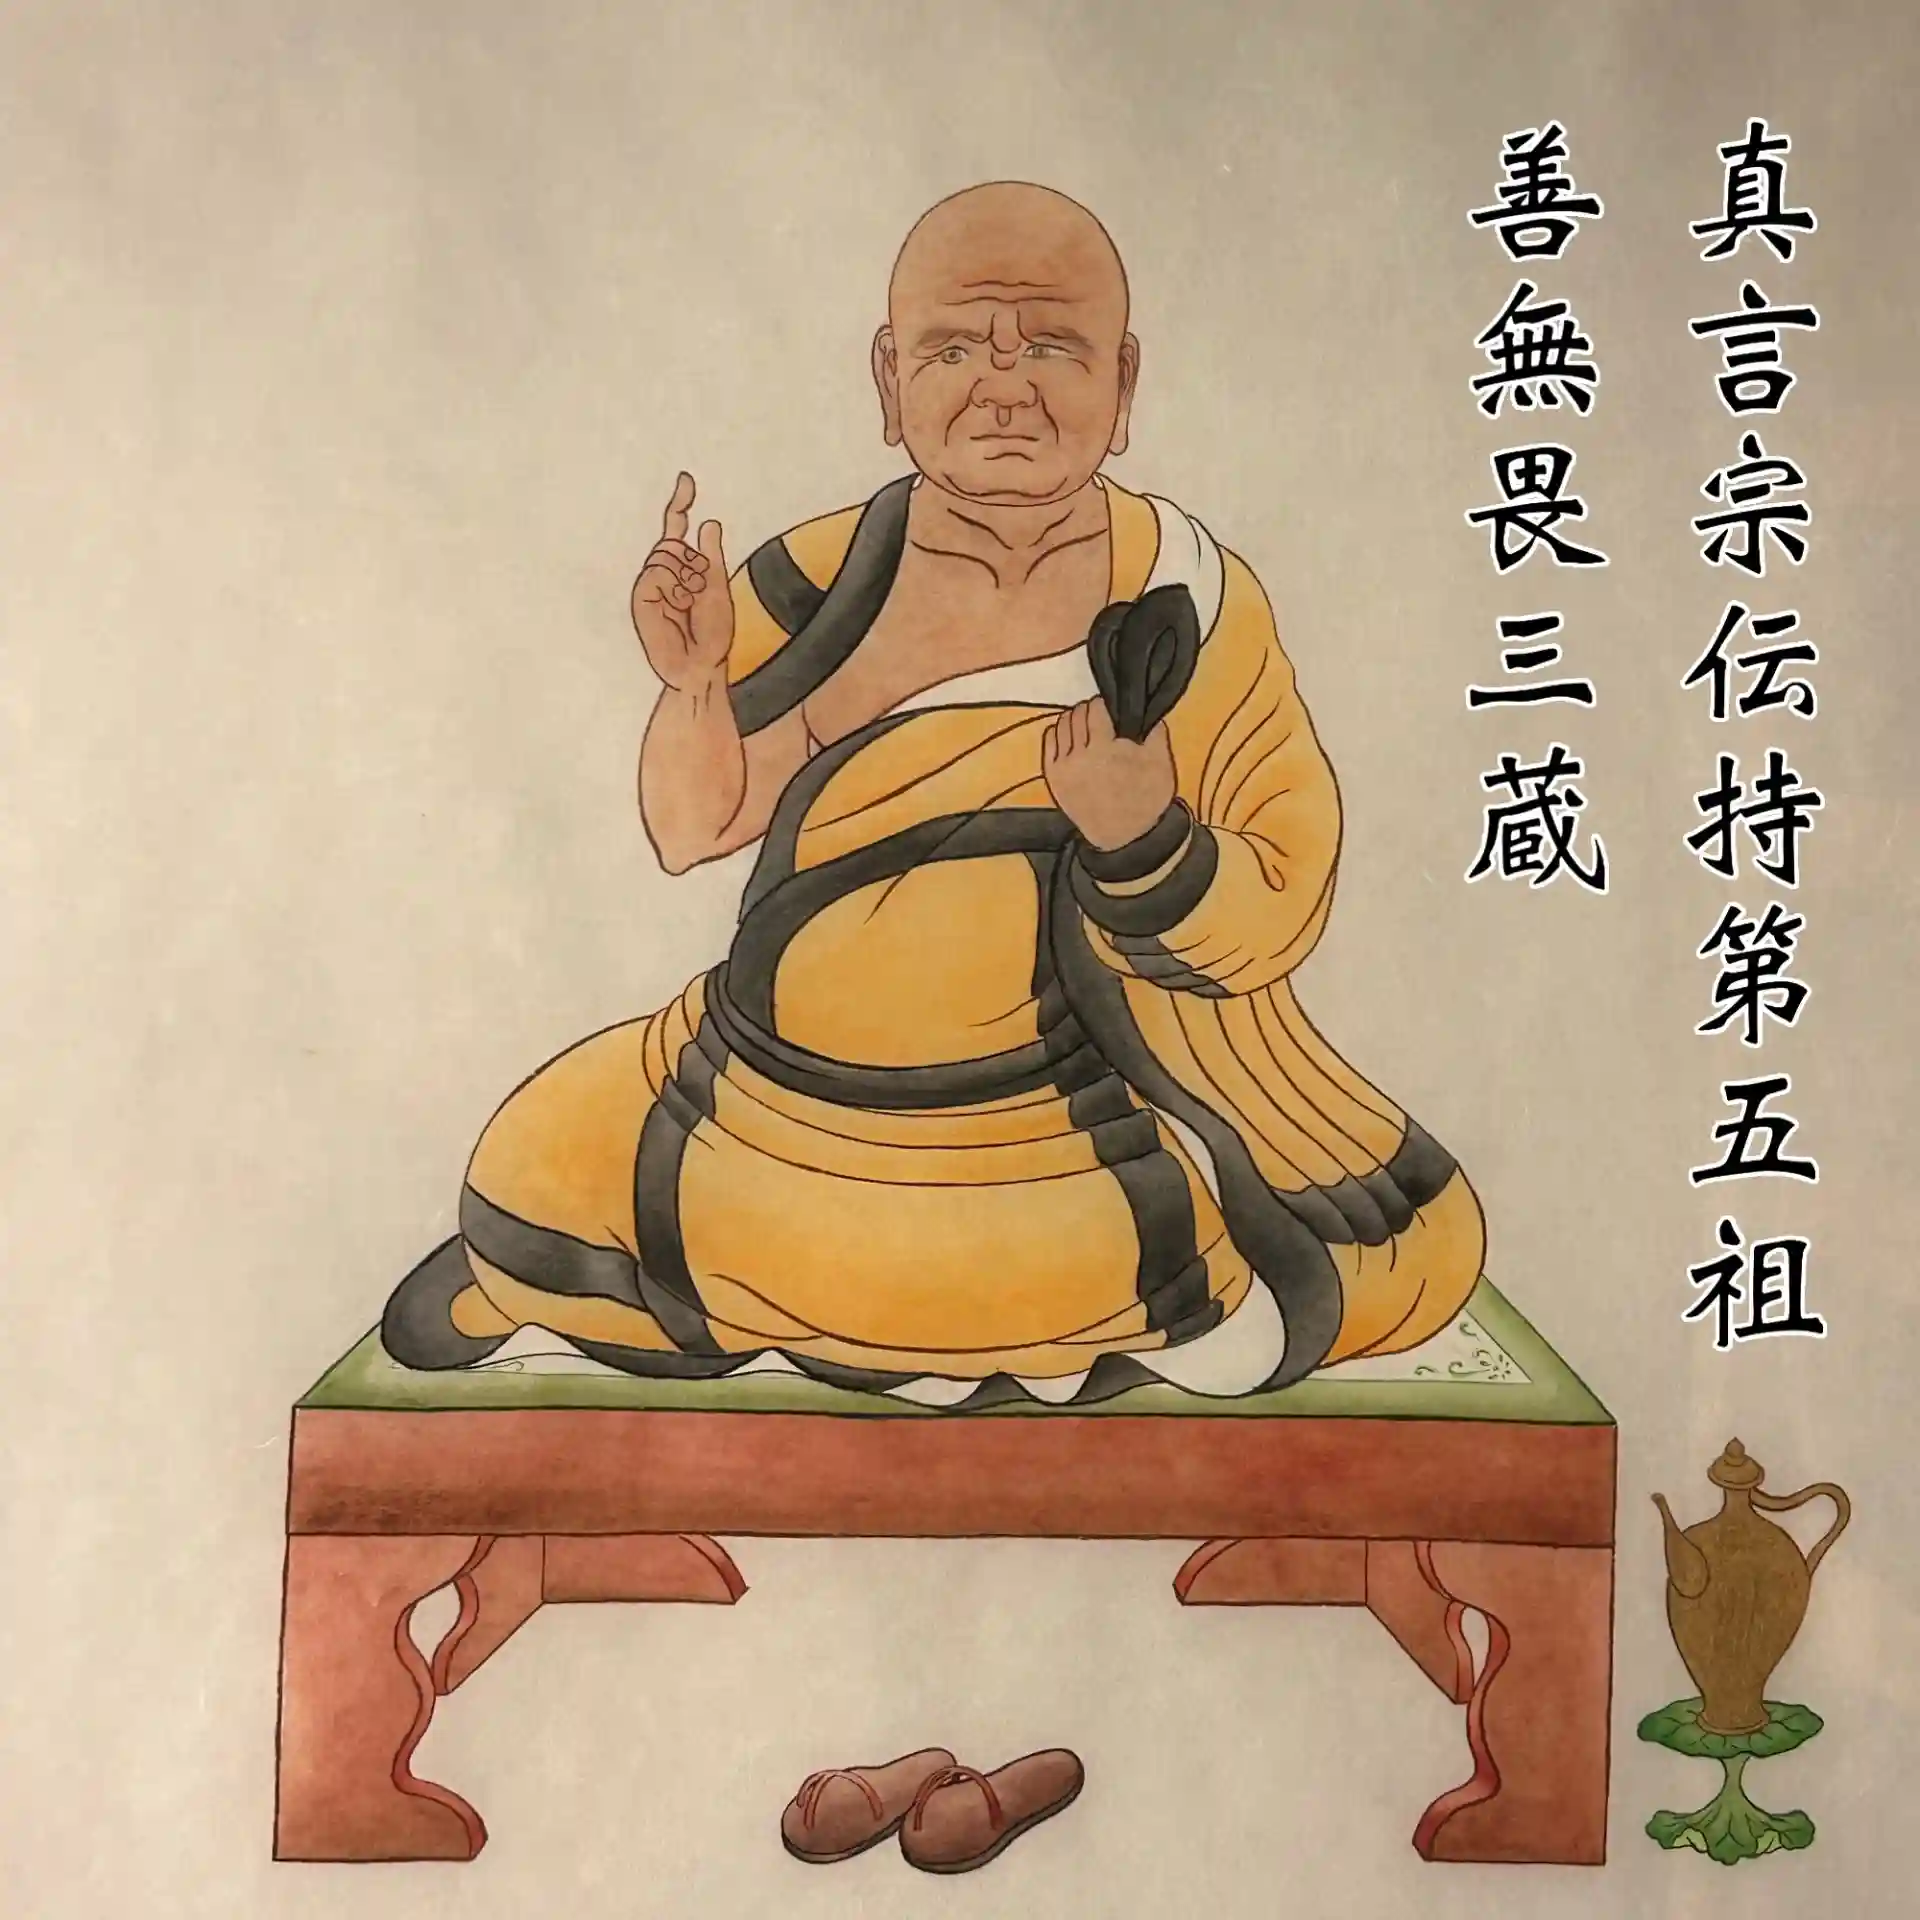 真言宗伝持第五祖
善無畏三蔵